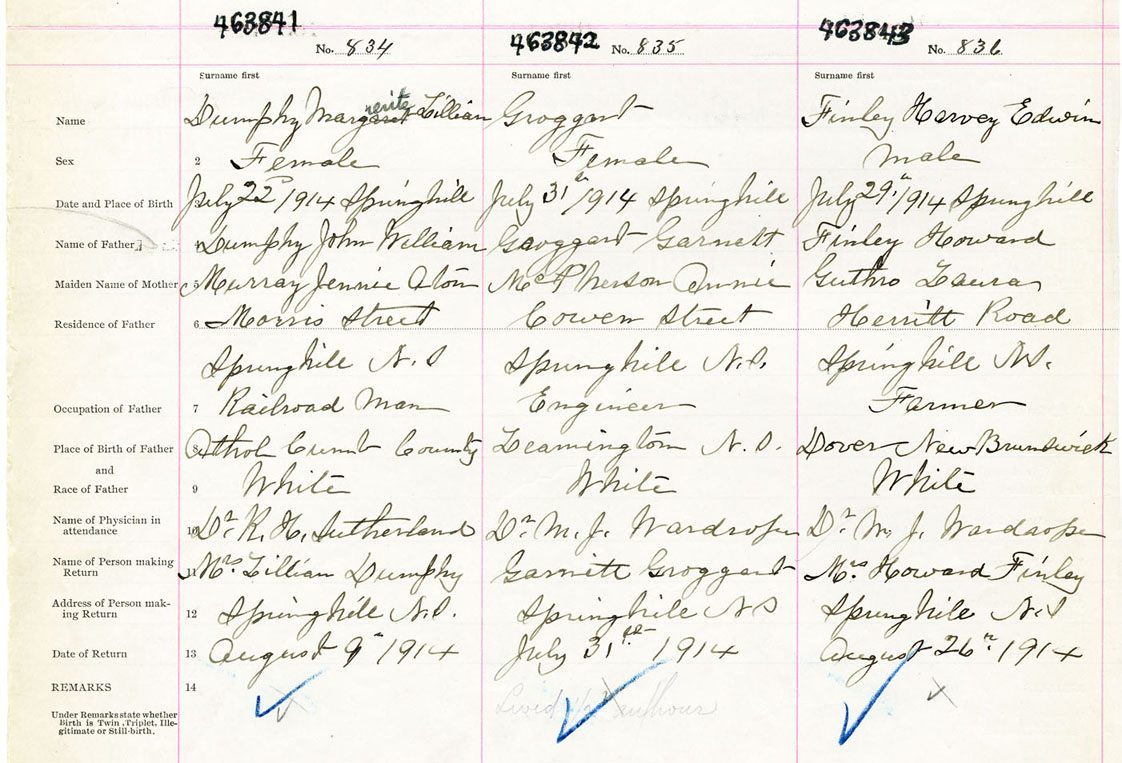 463841 463842 463843
No. 834 No. 835 No. 836
Surname first Surname first Surname first
Name Dumphy Margarerite Lillian Groggart Finley Harvey Edwin
Sex 2 Female Female Male
Date and Place of Birth 3 July 22 /1914 Springhill July 31st /1914 Springhill July 29th /1914 Springhill
Name of Father 4 Dumphy John William Groggart Garnett Finley Howard
Maiden Name of Mother 5 Murray Jennie McPherson Annie Guthro Laura
Residence of Father 6 Morris Street Cowen Street Herritt Road
Springhill N.S Springhill N.S. Springhill N.S.
Occupation of Father 7 Railroad Man Engineer Farmer
Place of Birth of Father 8 Athol Cumb County Leamington N.S. Dover New Brunswick
and
Race of Father 9 White White White
Name of Physician in
attendance 10 Dr K. H. Sutherland Dr M. J. Wardroper Dr M. J. Wardroper
Name of Person making
Return 11 Mrs Lillian Dumphy Garnitt Groggart Mrs Howard Finley
Address of Person mak-
ing Return 12 Springhill N.S. Springhill N S Springhill N.S
Date of Return 13 August 9th 1914 July 31st 1914 August 26th 1914
REMARKS 14
Lived 1/2 hour
Under Remarks state whether
Birth is Twin, Triplet, Ille-
gitimate or Still-birth.